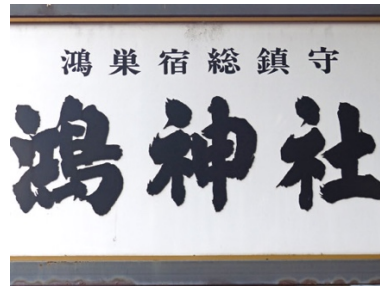 鴻巣宿総鎮守
鴻神社